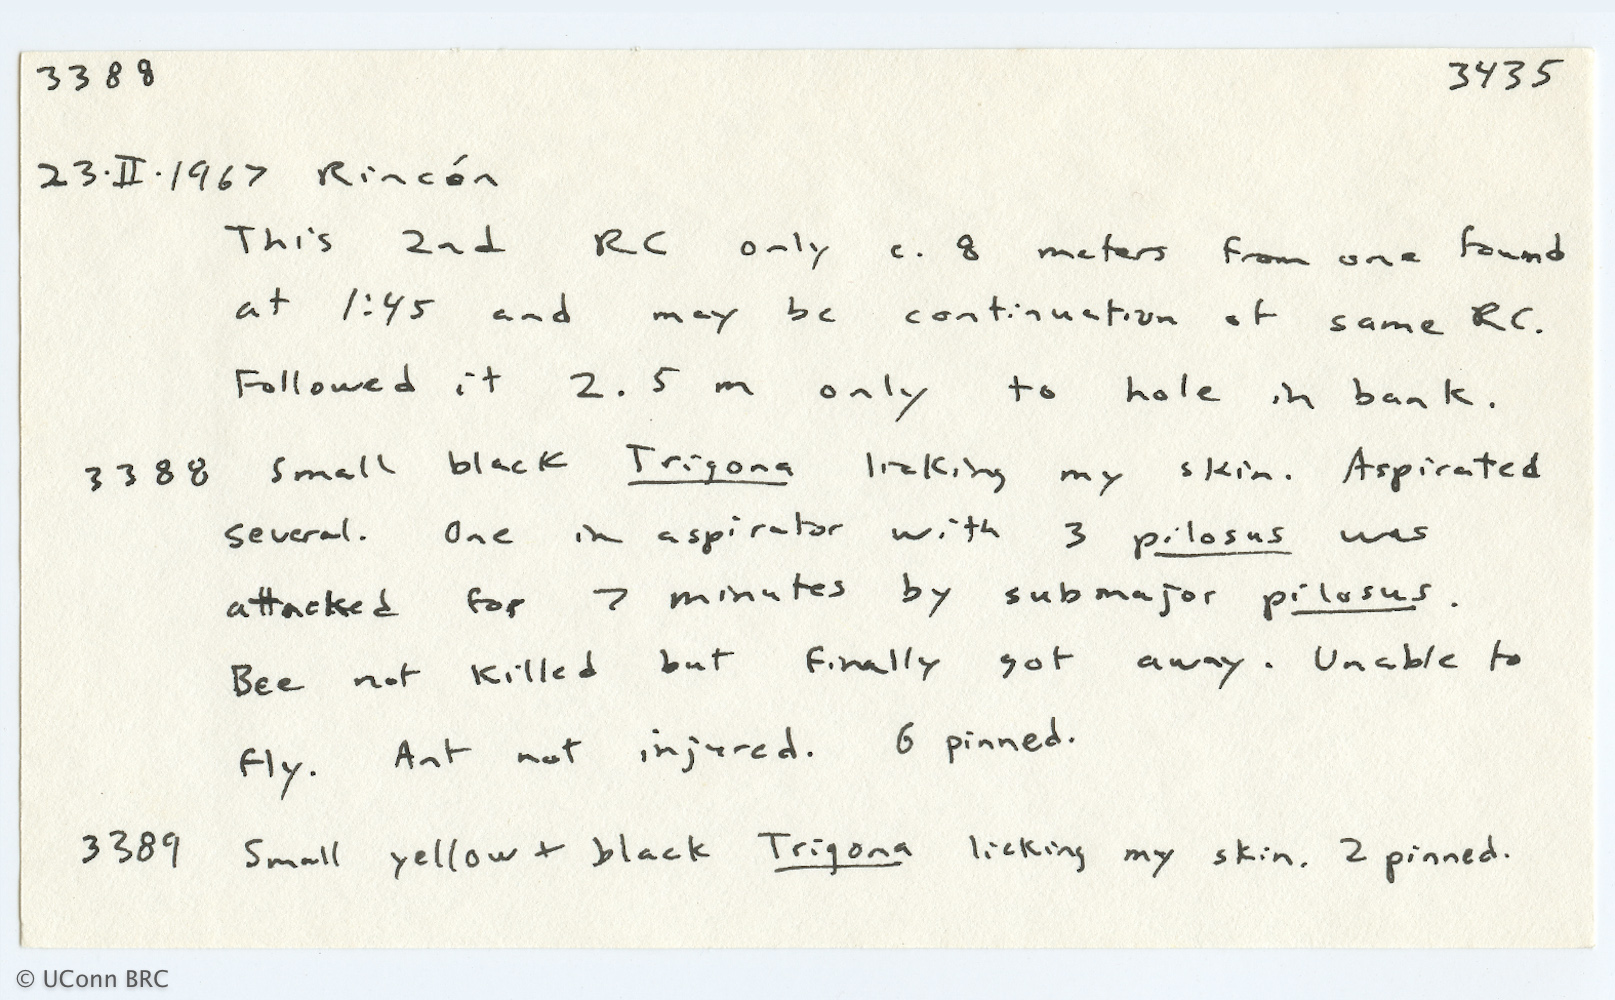 3388 3435
23·II·1967 Rincón
This 2nd RC only c. 8 meters from one found
at 1:45 and may be continuation of same RC.
Followed it 2.5 m only to hole in bank.
3388 Small black Trigona licking my skin. Aspirated
several. One in aspirator with 3 pilosus was
attacked for 7 minutes by submajor pilosus.
Bee not killed but finally got away. Unable to
fly. Ant not injured. 6 pinned.
3389 Small yellow + black Trigona licking my skin. 2 pinned.
© UConn BRC